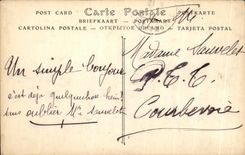 POST CARD Carte Postale POSTKARTE
BRIEFKAART BREFKORT
CARTOLINA POSTALE ОТКРЫТОЕ ПИСЬМО TARJETA POSTAL
Un simple bonjour
c'est déjà quelque chose
sans oublier Mr Sauvelet
Madame Sauvelet
P. T. T.
Courbevoie